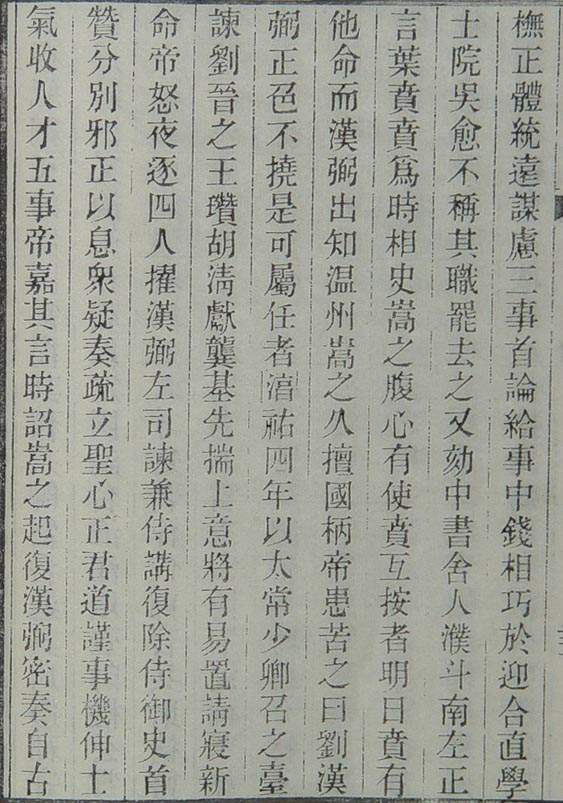 橅正體統遠謀慮三事首論給事中錢相巧於迎合直學
士院吳愈不稱其職罷去之又劾中書舍人濮斗南左正
言葉賁賁爲時相史嵩之腹心有使賁互按者明日賁有
他命而漢弼出知温州嵩之久擅國柄帝患苦之曰劉漢
弼正色不撓是可屬任者湻祐四年以太常少卿召之臺
諫劉晉之王瓚胡淸獻龔基先揣上意將有易置請寢新
命帝怒夜逐四人擢漢弼左司諫兼侍講復除侍御史首
贊分別邪正以息衆疑奏疏立聖心正君道謹事機伸士
氣收人才五事帝嘉其言時詔嵩之起復漢弼密奏自古